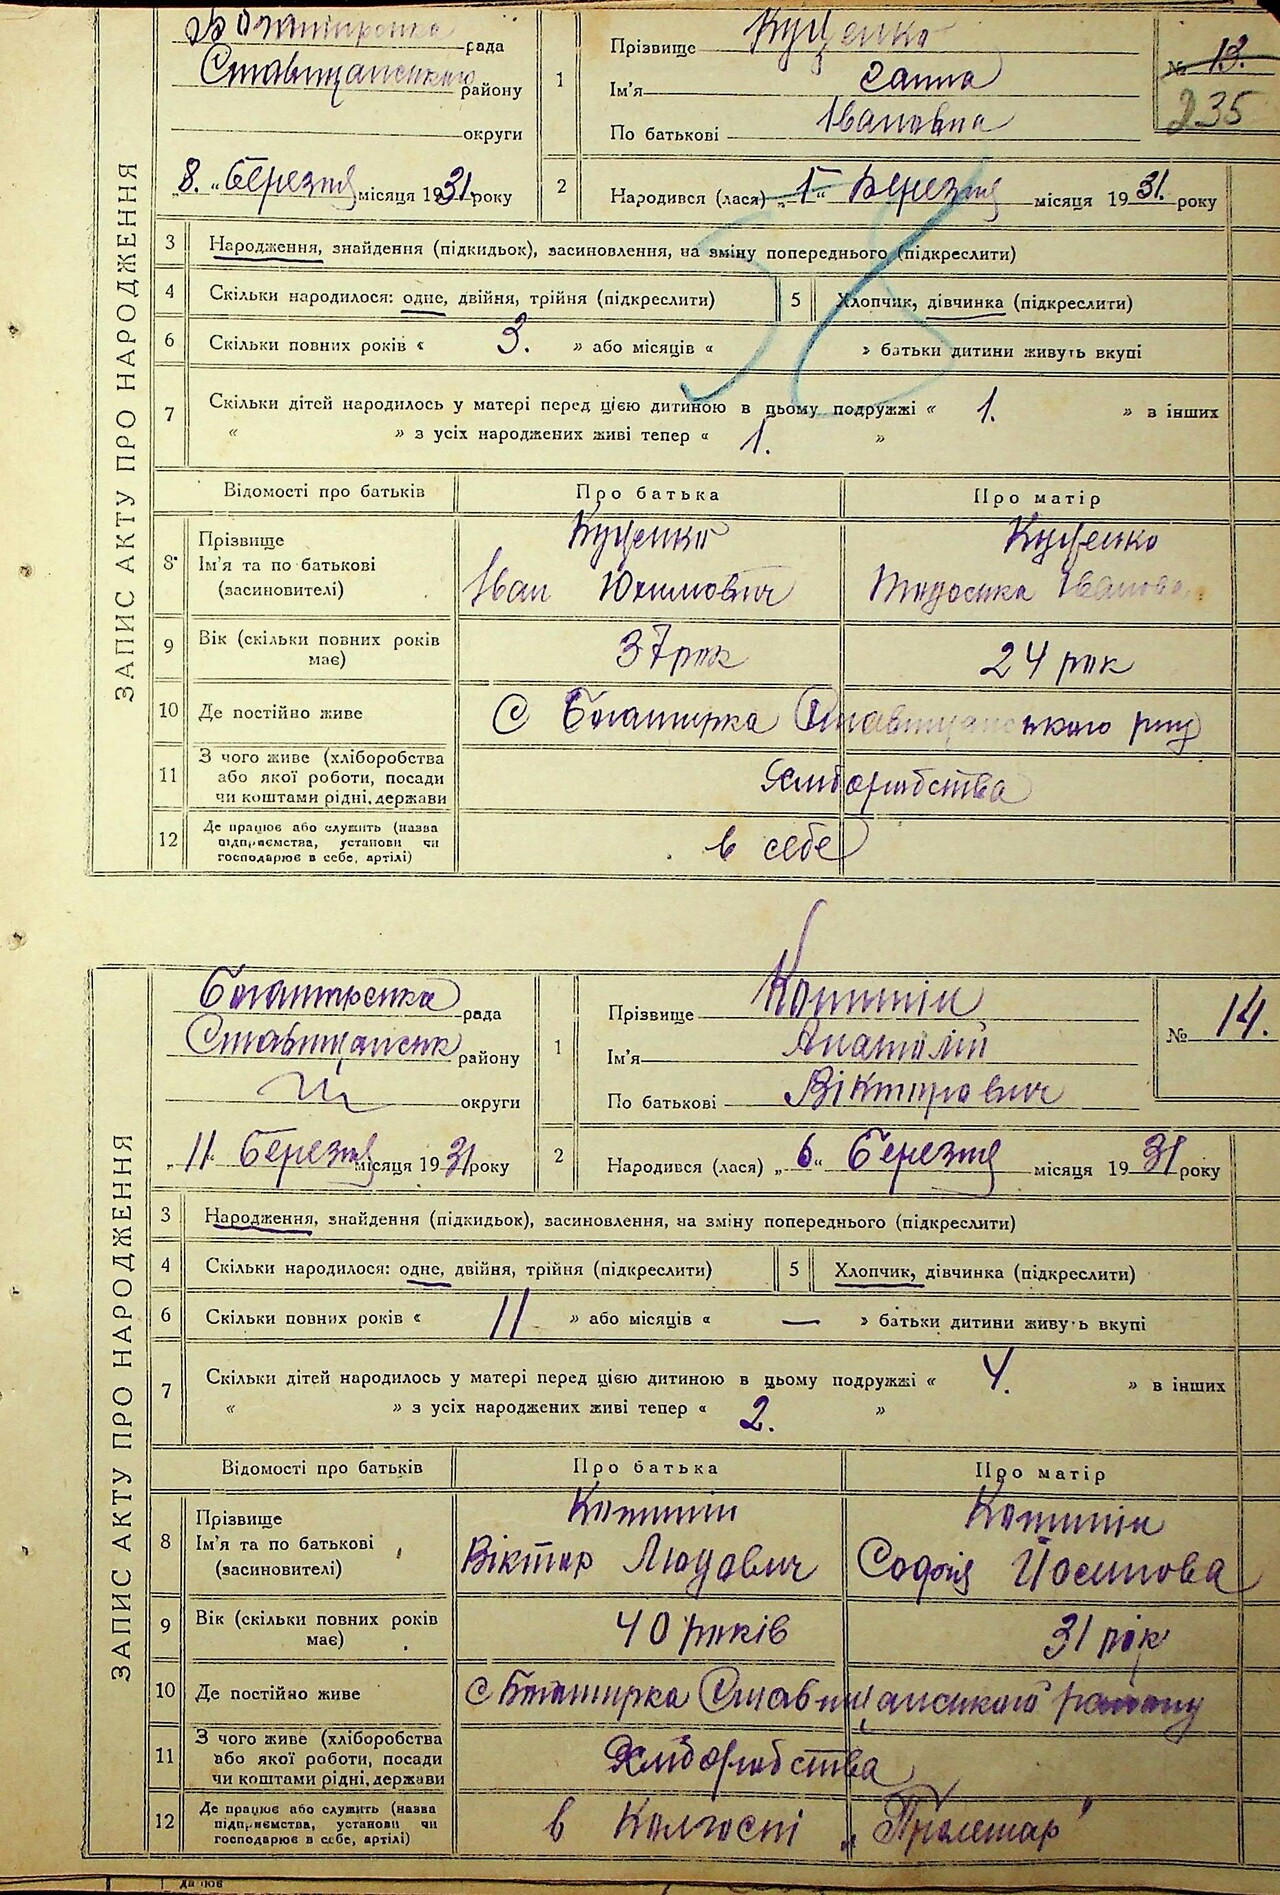 ЗАПИС АКТУ ПРО НАРОДЖЕННЯ
рада
Ставищанського району
округи
„8.“ Березня місяця 1931 року
1 Прізвище Куценко
Ім'я Ганна
По батькові Івановна
№ 13.
235
2 Народився (лася) „1“ Березня місяця 1931. року
58
3 Народження, знайдення (підкидьок), засиновлення, на зміну попереднього (підкреслити)
4 Скільки народилося: одне, двійня, трійня (підкреслити)
5 Хлопчик, дівчинка (підкреслити)
6 Скільки повних років « 3. » або місяців « » батьки дитини живуть вкупі
7 Скільки дітей народилось у матері перед цією дитиною в цьому подружжі « 1. » в інших
« » з усіх народжених живі тепер « 1. »
Відомості про батьків Про батька Про матір
8 Прізвище Куценко Куценко
Ім'я та по батькові Іван Юхимович Тодоська Іванова
(засиновителі)
9 Вік (скільки повних років має) 37 рок 24 рок
10 Де постійно живе С Богатирка Ставищанського р-ну
11 З чого живе (хліборобства або якої роботи, посади чи коштами рідні, держави Хліборобства
12 Де працює або служить (назва підприємства, установи чи господарює в себе, артілі) в себе
ЗАПИС АКТУ ПРО НАРОДЖЕННЯ
Богатирська рада
Ставищанськ району
округи
„11“ Березня місяця 1931 року
1 Прізвище
Ім'я Анатолій
По батькові Вікторович
№ 14.
2 Народився (лася) „6“ Березня місяця 1931 року
3 Народження, знайдення (підкидьок), засиновлення, на зміну попереднього (підкреслити)
4 Скільки народилося: одне, двійня, трійня (підкреслити)
5 Хлопчик, дівчинка (підкреслити)
6 Скільки повних років « 11 » або місяців « — » батьки дитини живуть вкупі
7 Скільки дітей народилось у матері перед цією дитиною в цьому подружжі « 4. » в інших
« » з усіх народжених живі тепер « 2. »
Відомості про батьків Про батька Про матір
8 Прізвище
Ім'я та по батькові Віктор Людович Софія Йосипова
(засиновителі)
9 Вік (скільки повних років має) 40 років 31 рік
10 Де постійно живе с Богатирка Ставищанського району
11 З чого живе (хліборобства або якої роботи, посади чи коштами рідні, держави Хліборобства
12 Де працює або служить (назва підприємства, установи чи господарює в себе, артілі) в Колгоспі „Пролетар“